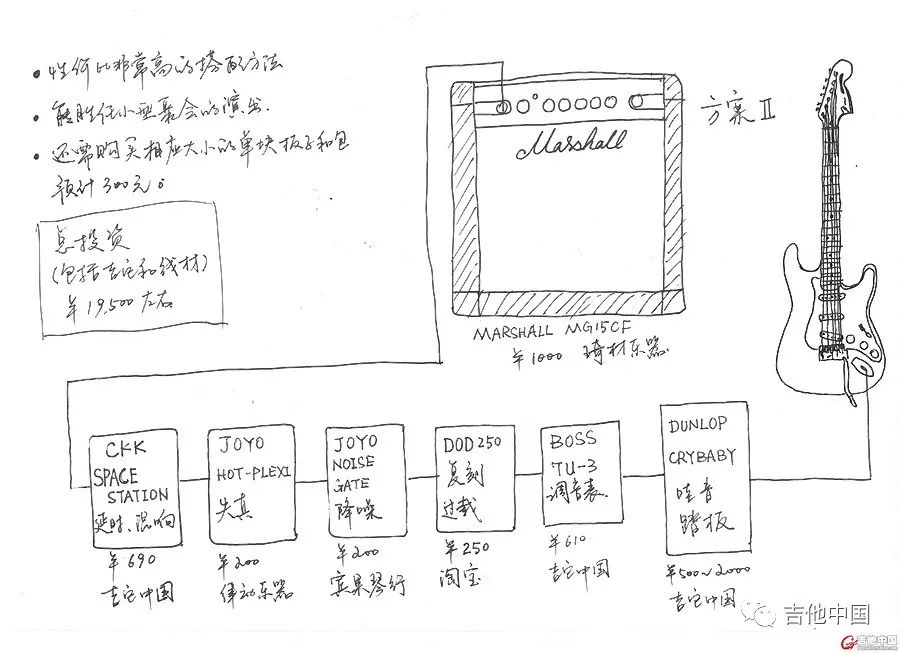 • 性价比非常高的搭配方法
• 能胜任小型聚会的演出.
• 还需购买相应大小的单块板子和包
预计300元。
总投资
(包括吉它和线材)
¥19,500左右
方案Ⅱ
Marshall
MARSHALL MG15CF
¥1000 琦材乐器
CKK
SPACE
STATION
延时、混响
¥690
吉它中国
JOYO
HOT-PLEXI
失真
¥200
伴动乐器
JOYO
NOISE
GATE
降噪
¥200
宾果琴行
DOD250
复刻
过载
¥250
淘宝
BOSS
TU-3
调音表
¥610
吉它中国
DUNLOP
CRYBABY
哇音
踏板
¥500~2000
吉它中国
吉他中国
吉他中国